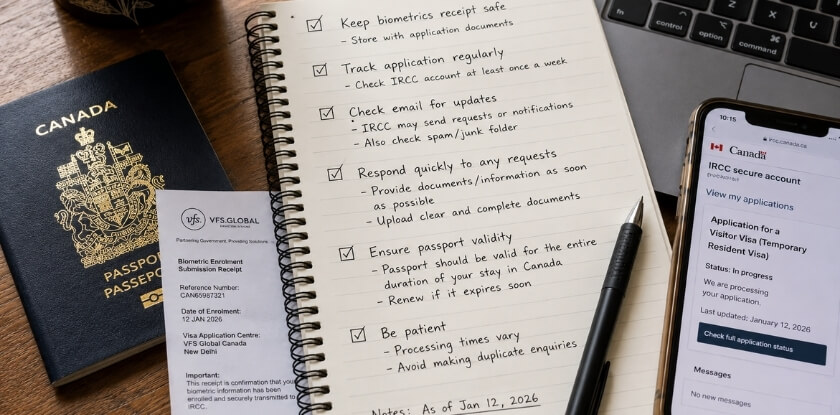 CANADA
PASSPORT
PASSEPORT
vfs.
VFS.GLOBAL
Partnering Governments. Providing Solutions.
Biometric Enrolment
Submission Receipt
Reference Number:
CAN65987321
Date of Enrolment:
12 JAN 2026
Visa Application Centre:
VFS Global Canada
New Delhi
Important:
This receipt is confirmation that your
biometric information has been
enrolled and securely transmitted to
IRCC.
Keep biometrics receipt safe
- Store with application documents
Track application regularly
- Check IRCC account at least once a week
Check email for updates
- IRCC may send requests or notifications
- Also check spam/junk folder
Respond quickly to any requests
- Provide documents/information as soon
as possible
- Upload clear and complete documents
Ensure passport validity
- Passport should be valid for the entire
duration of your stay in Canada
- Renew if it expires soon
Be patient
- Processing times vary
- Avoid making duplicate enquiries
Notes: As of Jan 12, 2026
fn
control
option
command
Z
X
10:15
Canada
IRCC secure account
View my applications
Application for a
Visitor Visa (Temporary
Resident Visa)
Status: In progress
We are processing
your application.
Last updated: January 12, 2026
Check full application status
Messages
No new messages